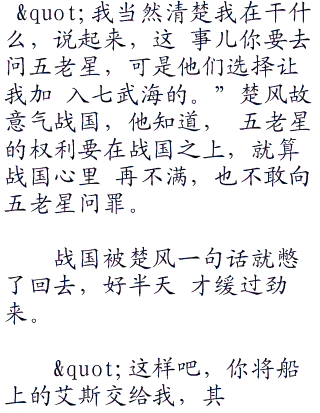 &quot;我当然清楚我在干什
么，说起来，这 事儿你要去
问五老星，可是他们选择让
我加 入七武海的。”楚风故
意气战国，他知道， 五老星
的权利要在战国之上，就算
战国心里 再不满，也不敢向
五老星问罪。
战国被楚风一句话就憋
了回去，好半天 才缓过劲
来。
&quot;这样吧，你将船
上的艾斯交给我，其